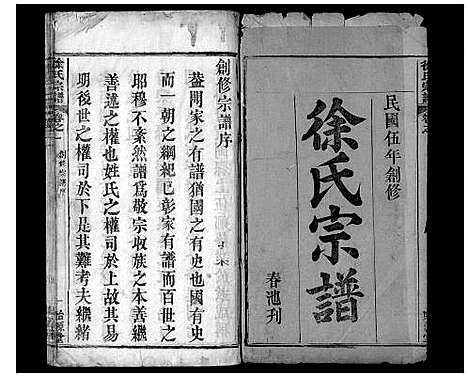 徐氏宗譜
民國伍年創修
徐氏宗譜
春池刋
創修宗譜序
蓋聞家之有譜猶國之有史也國有史
而一朝之綱紀已彰家有譜而百世之
昭穆不紊然譜爲敬宗收族之本善繼
善述之權也姓氏之權司於上故其易
明後世之權司於下是其難考夫繼緒
徐氏宗譜
卷之一
創修宗譜序
一